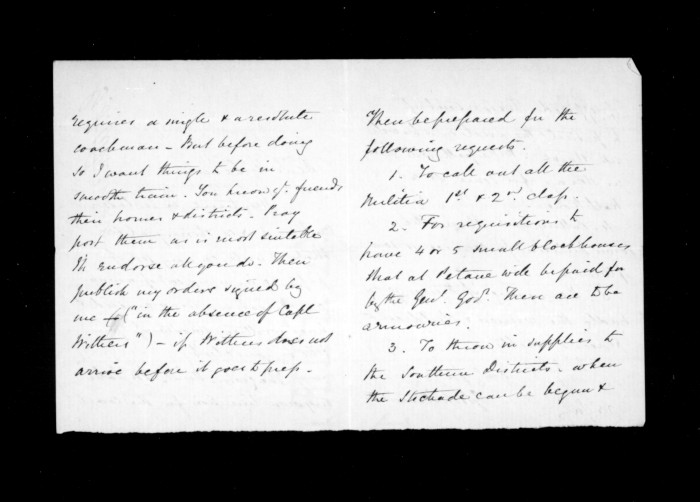 requires a single & a resolute
coachman - But before doing
so I want things to be in
smooth train. You know yr. friends
their homes & districts. Pray
post them as is most suitable
I'll endorse all you do. Then
publish my orders signed by
me ("in the absence of Capt
Withers") - if Withers does not
arrive before it goes to press.
Then be prepared for the
following requests.
1. To call out all the
Militia 1st & 2nd class.
2. For requisitions to
have 4 or 5 small blockhouses
that at Petane will be paid for
by the Genl. Govt. These are to be
armouries.
3. To throw in supplies to
the Southern Districts. when
the Stockade can be begun &